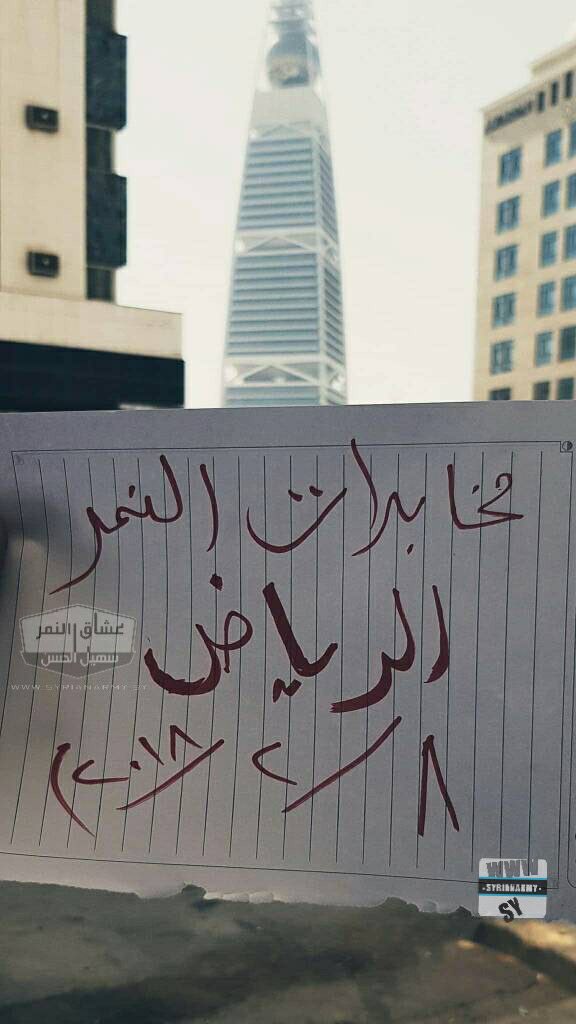 مخابرات النمر
الرياض
٨/٢/٢٠١٨م
عشاق النمر
سهيل الحسن
WWW.SYRIANARMY.SY
WWW
SYRIANARMY
SY